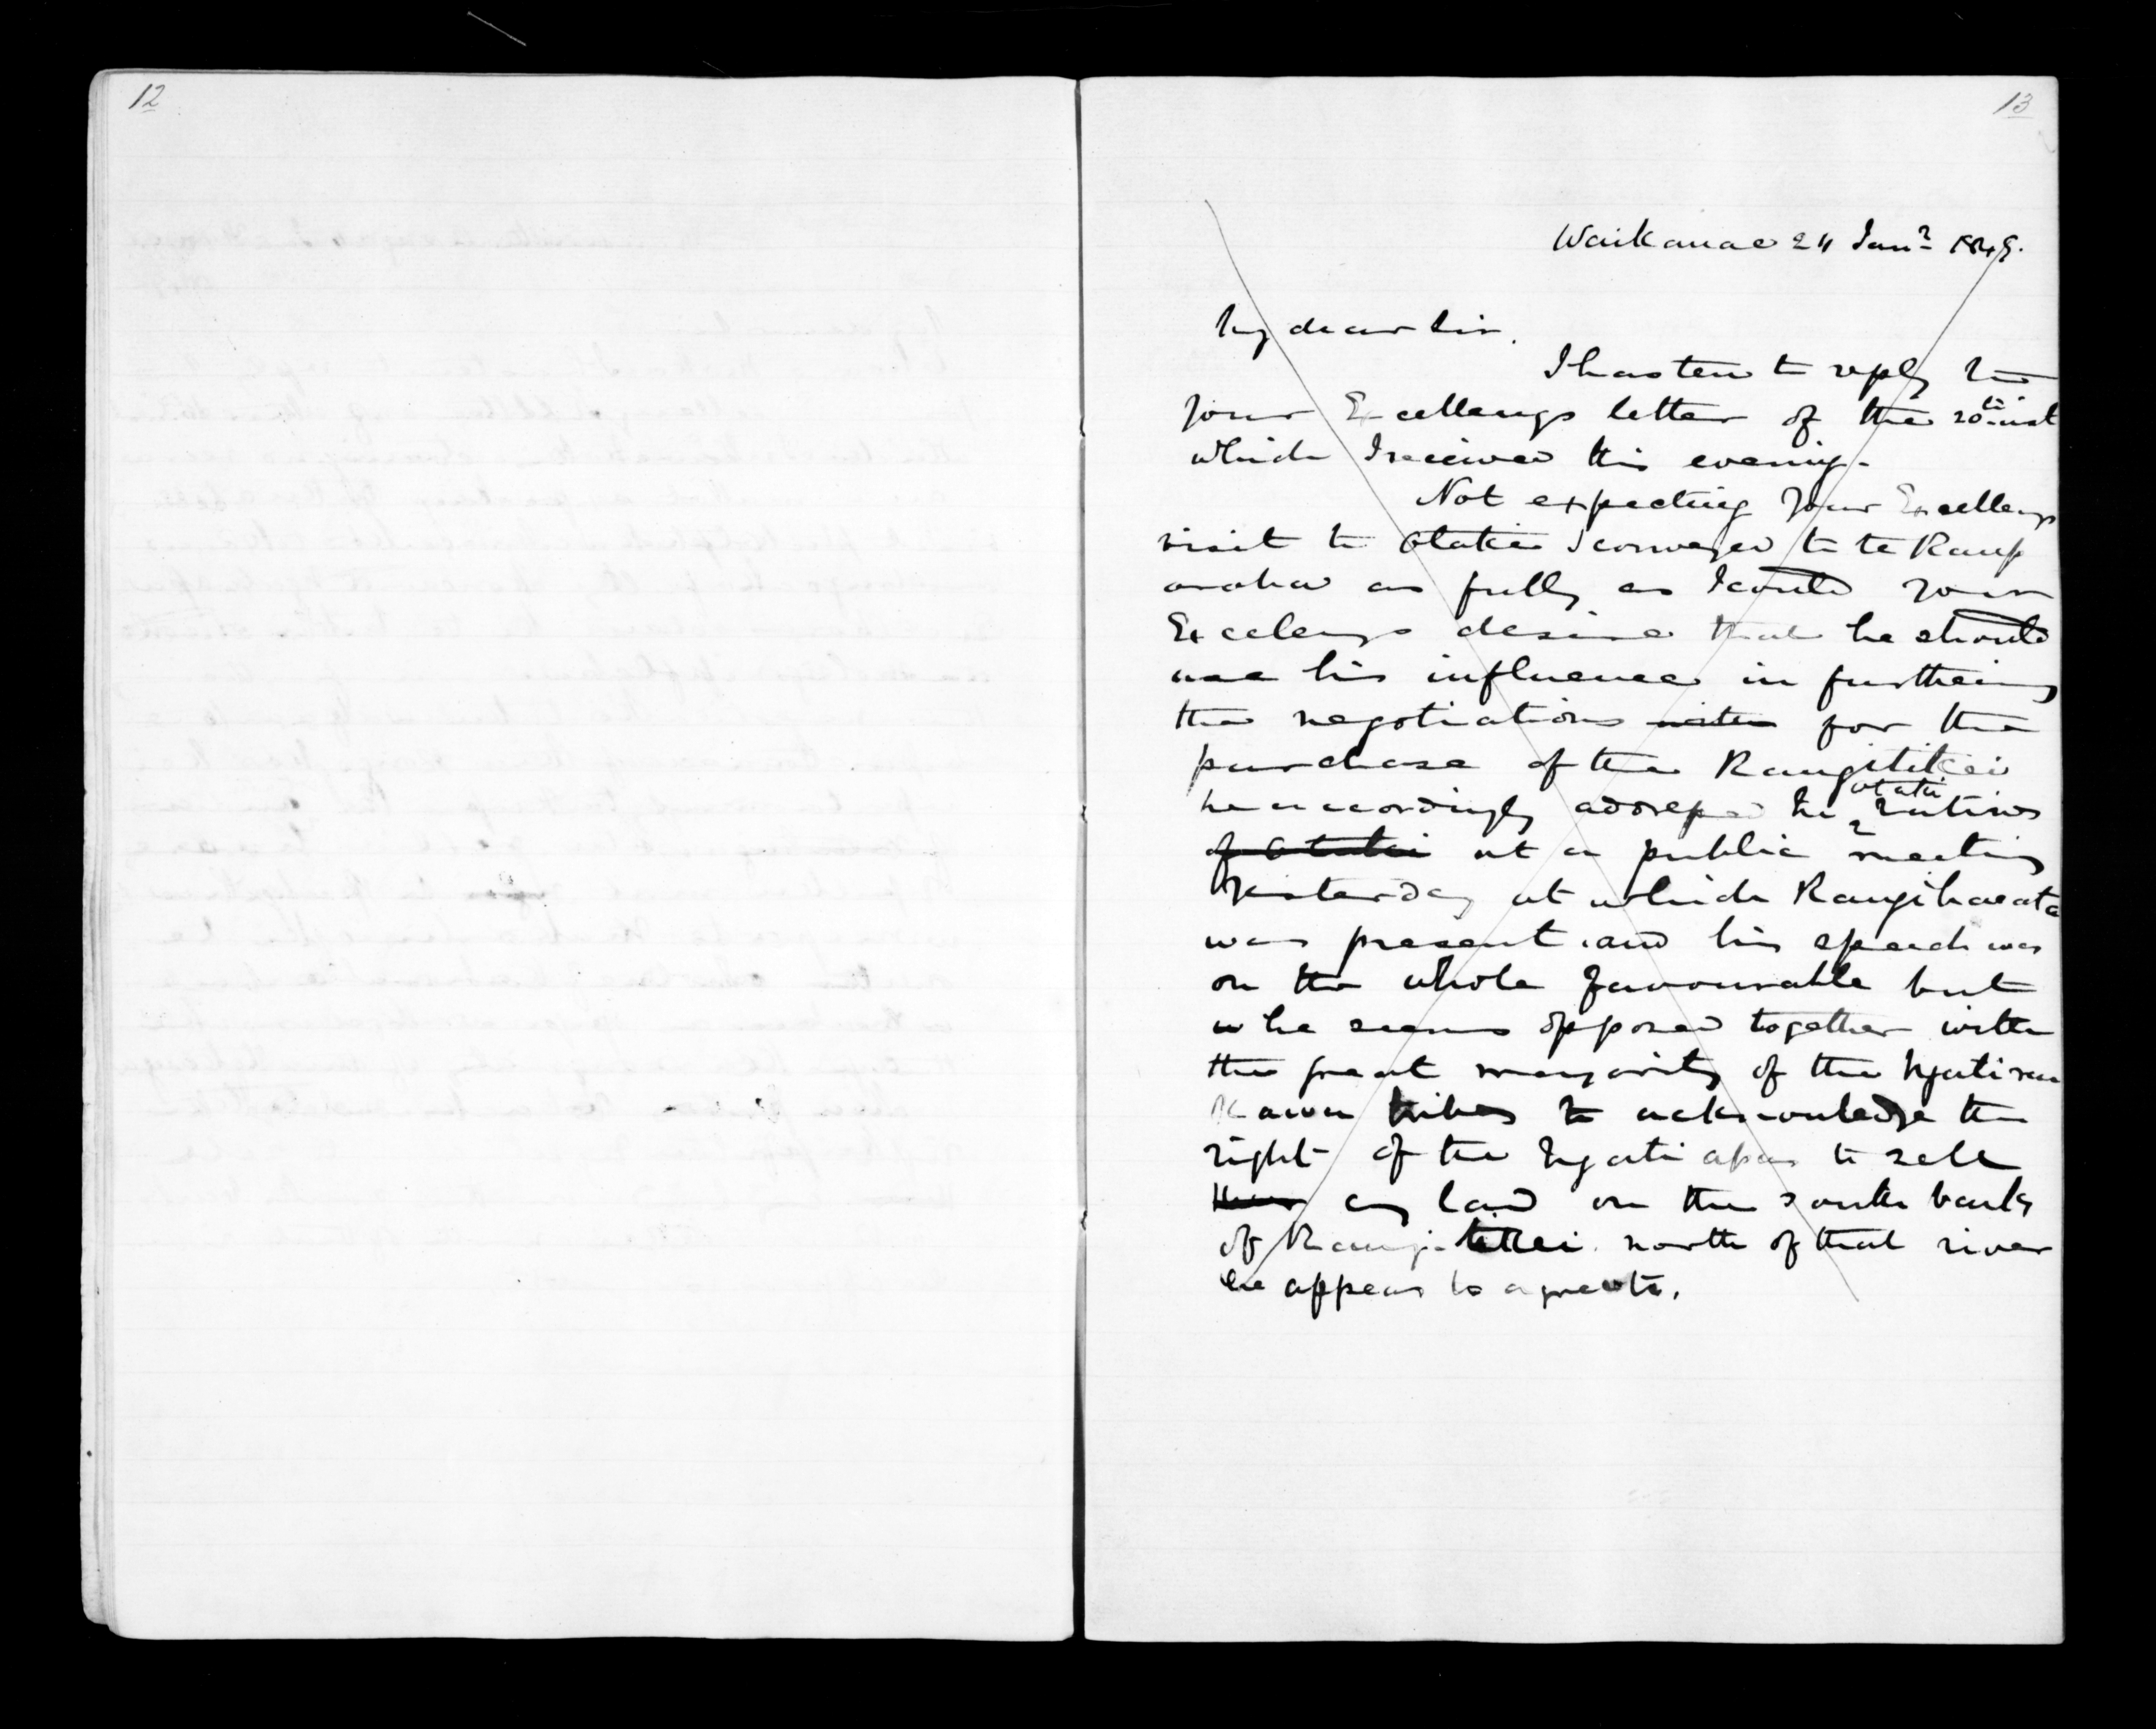 12
13
Waikanae 24 Jany 1849.
My dear Sir,
I hasten to reply to
your Excellencys letter of the 20th inst
which I received this evening.
Not expecting your Excellencys
visit to Otaki I conveyed to te Raup
araha as fully as I could your
Excelencys desire that he should
use his influence in furthering
the negotiations with for the
purchase of the Rangitikei
he accordingly addressed the Otaki natives
of Otaki at a public meeting
Yesterday at which Rangihaeata
was present and his speech was
on the whole favourable but
he seems opposed together with
the great majority of the Ngatirau
kawa tribes to acknowledge the
right of the Ngatiapa to sell
their any land on the south bank
of Rangitikei north of that river
he appears to agree to.